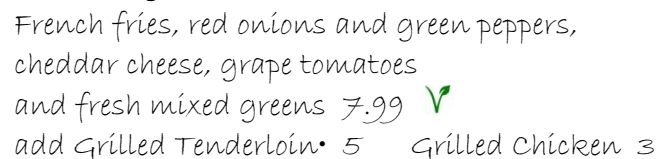 French fries, red onions and green peppers,
cheddar cheese, grape tomatoes
and fresh mixed greens 7.99
add Grilled Tenderloin• 5 Grilled Chicken 3